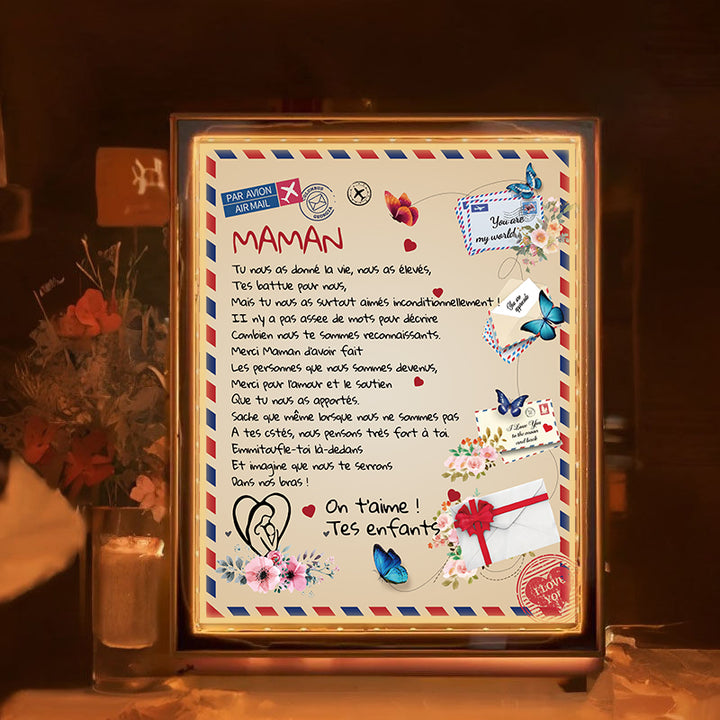 PAR AVION
AIR MAIL
MAMAN
Tu nous as donné la vie, nous as élevés,
T'es battue pour nous,
Mais tu nous as surtout aimés inconditionnellement !
II n'y a pas assee de mots pour décrire
Combien nous te sommes reconnaissants.
Merci Maman d'avoir fait
Les personnes que nous sommes devenus,
Merci pour l'amour et le soutien
Que tu nous as apportés.
Sache que même lorsque nous ne sommes pas
A tes cstés, nous pensons trés fort à toi.
Emmitoufle-toi là-dedans
Et imagine que nous te serrons
Dans nos bras !
On t'aime !
Tes enfants
You are
my world
I Love You
to the moon
and back
I LOVE
YO